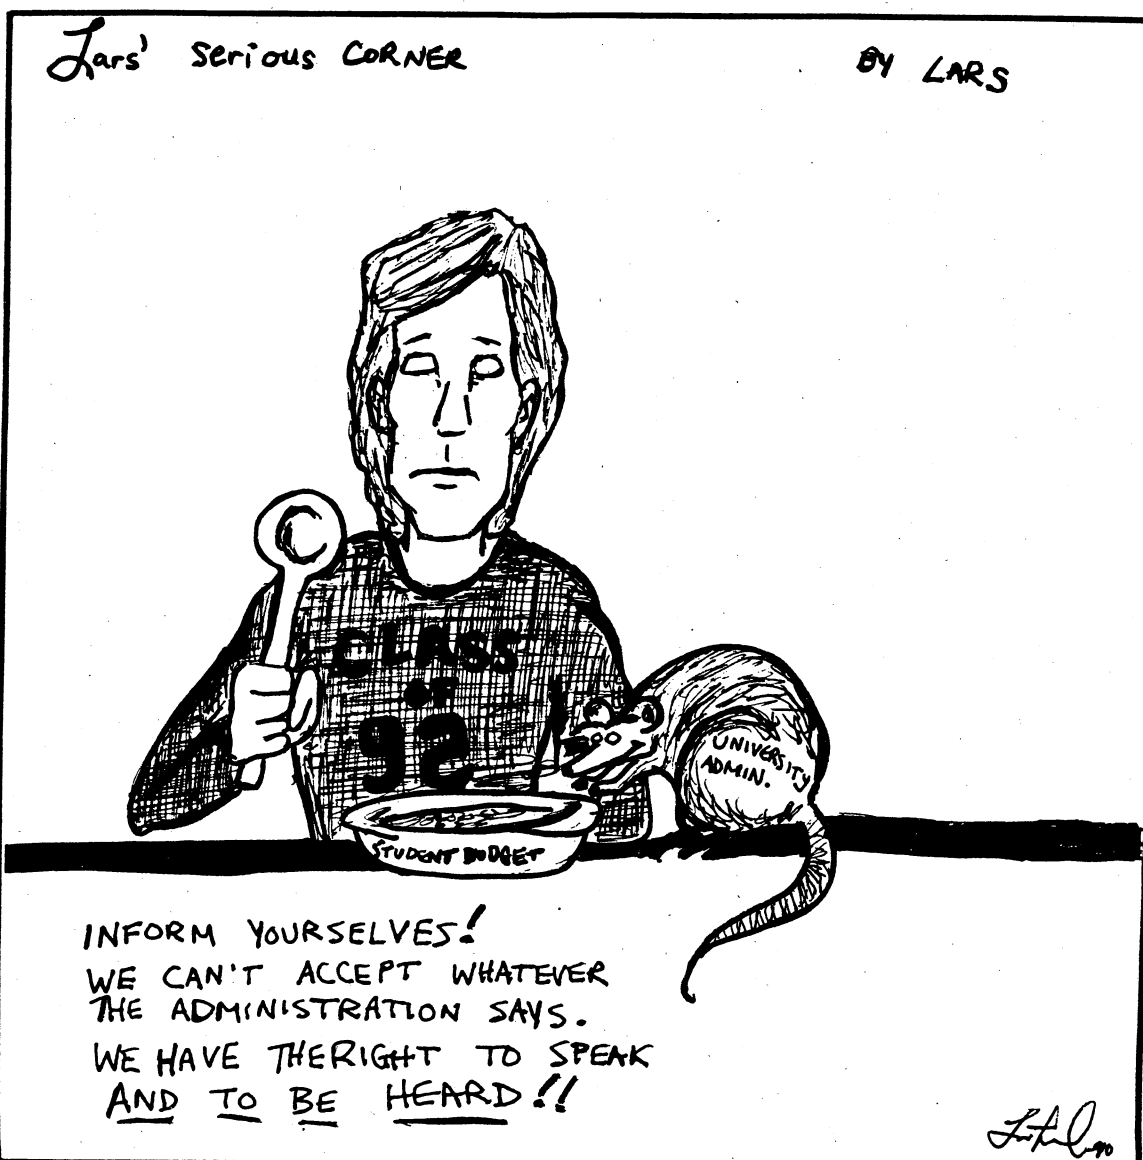 Lars' Serious CORNER
BY LARS
CLASS
OF
92
UNIVERSITY
ADMIN.
STUDENT BUDGET
INFORM YOURSELVES!
WE CAN'T ACCEPT WHATEVER
THE ADMINISTRATION SAYS.
WE HAVE THE RIGHT TO SPEAK
AND TO BE HEARD!!